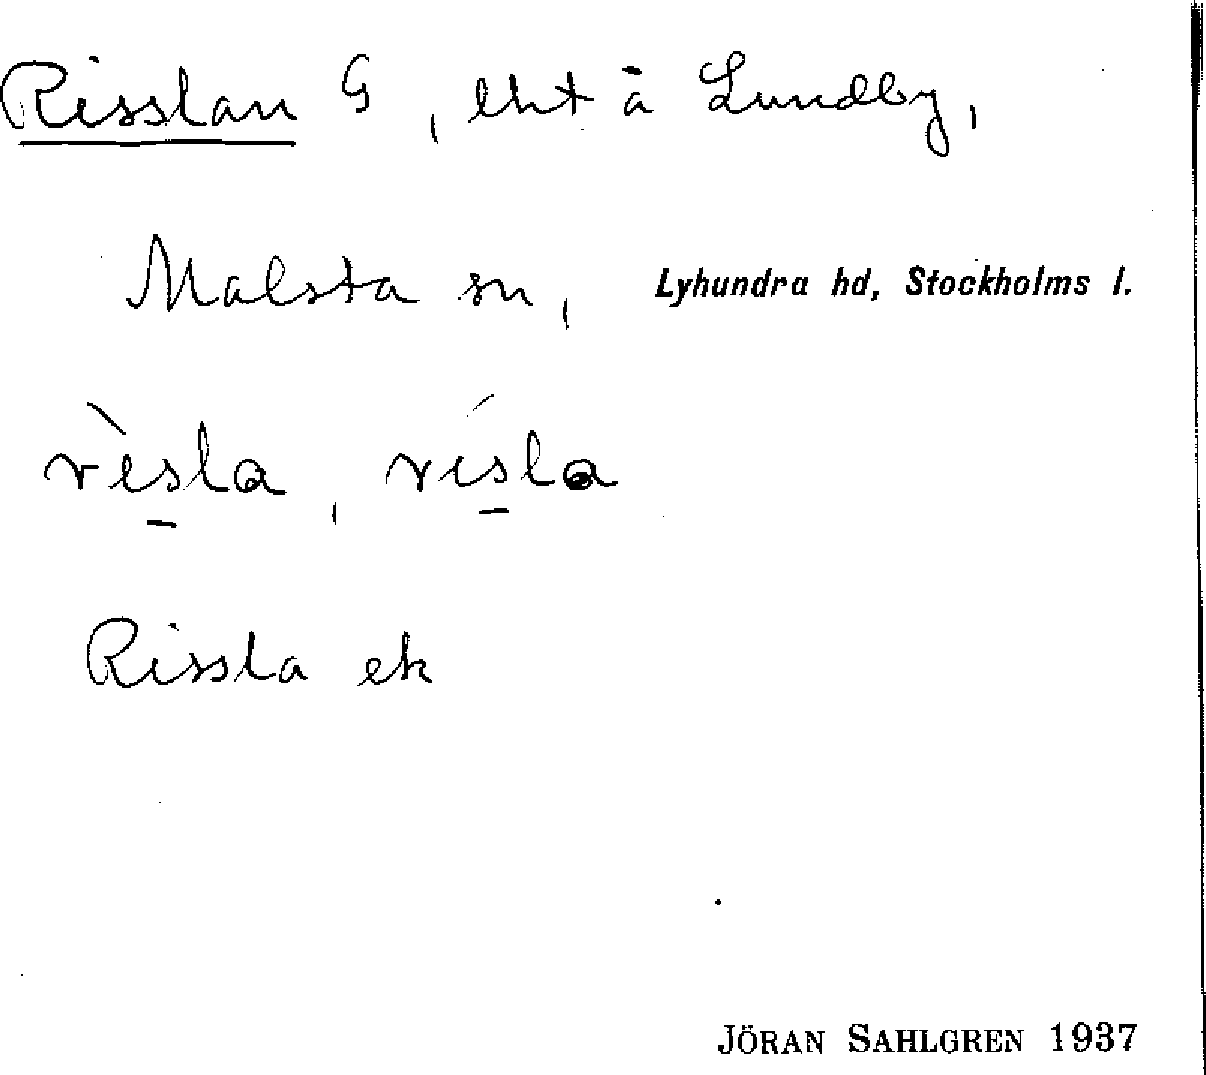 Risslan G, lht å Lundby,
Malsta sn, Lyhundra hd, Stockholms l.
rìsla, rísla
Rissla ek
JÖRAN SAHLGREN 1937